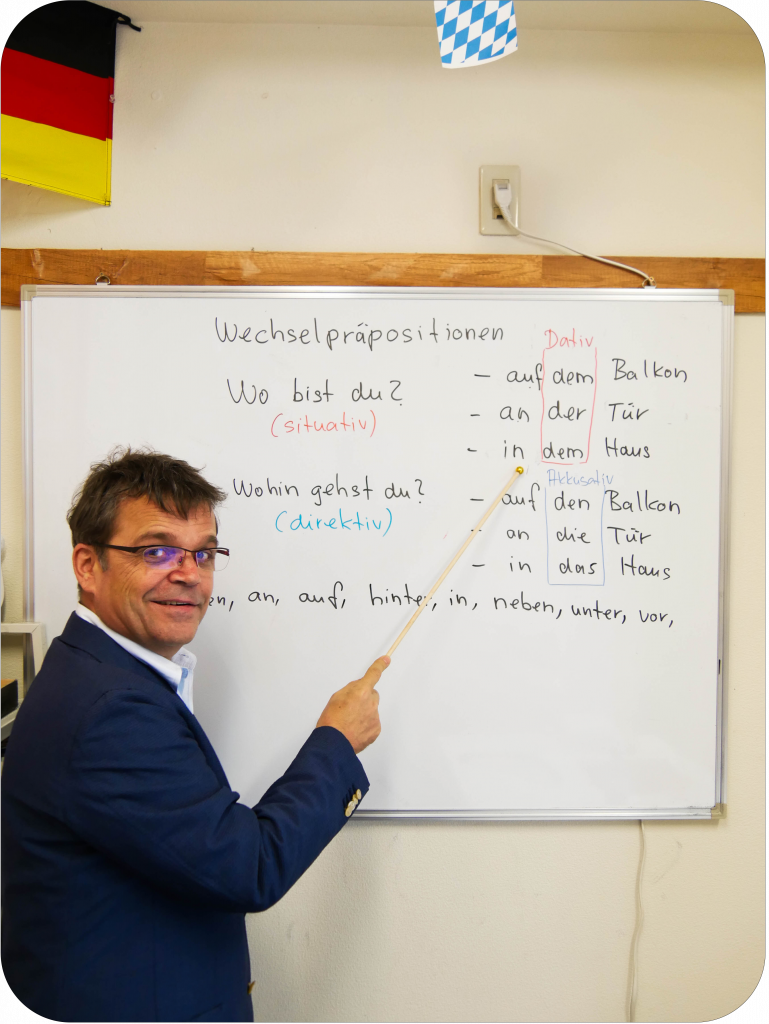 Wechselpräpositionen
Wo bist du?
(situativ)
Dativ
– auf dem Balkon
- an der Tür
- in dem Haus
Wohin gehst du?
(direktiv)
Akkusativ
- auf den Balkon
- an die Tür
- in das Haus
an, auf, hinter, in, neben, unter, vor,